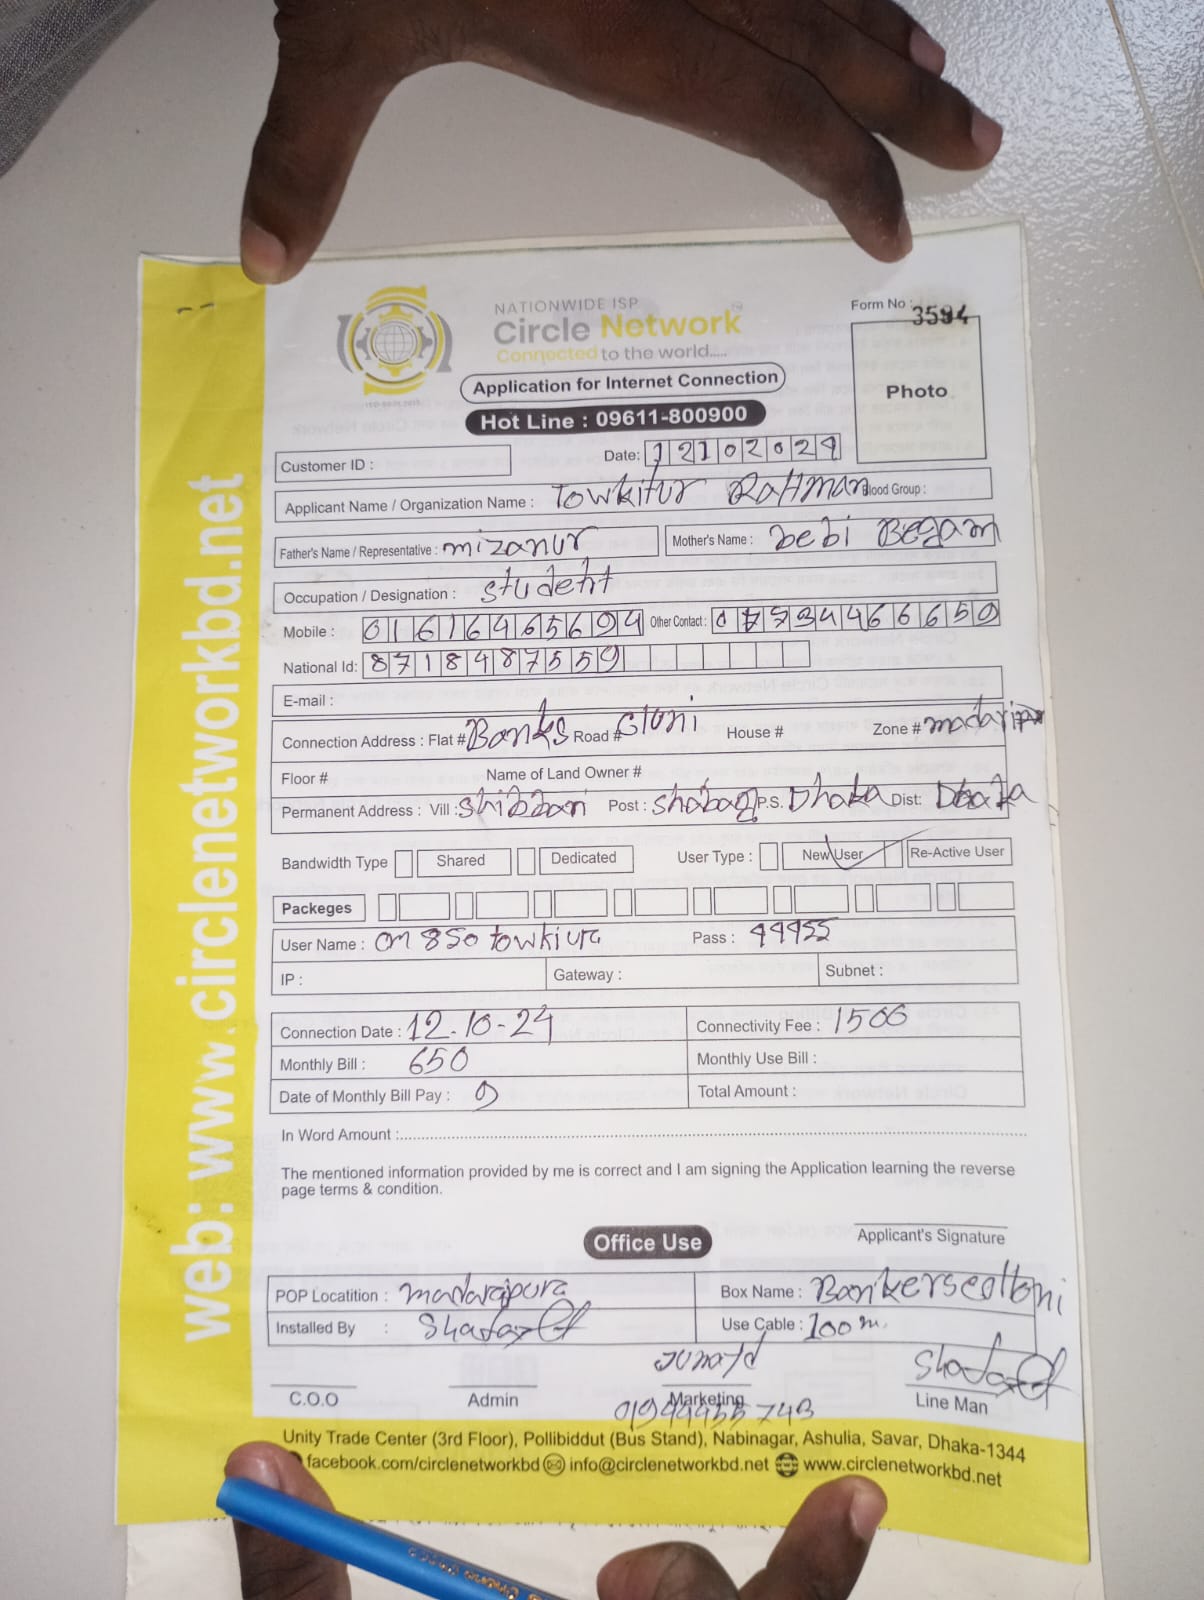 NATIONWIDE ISP
Circle Network
Connected to the world.....
Form No : 3594
Photo
Application for Internet Connection
Hot Line : 09611-800900
Customer ID :
Date: 12102024
Applicant Name / Organization Name : Towkitur Rahman Blood Group :
Father's Name / Representative : mizanur Mother's Name : bebi Begam
Occupation / Designation : student
Mobile : 01616465694 Other Contact : 01
National Id: 8718487559
E-mail :
Connection Address : Flat # Banks Road # Cloni House # Zone # madaripur
Floor # Name of Land Owner #
Permanent Address : Vill : shibbari Post : shabag P.S. Dhaka Dist: Dhaka
Bandwidth Type Shared Dedicated User Type : New User Re-Active User
Packeges
User Name : Pass : 99955
IP : Gateway : Subnet :
Connection Date : 12-10-24 Connectivity Fee : 1500
Monthly Bill : 650 Monthly Use Bill :
Date of Monthly Bill Pay : Total Amount :
In Word Amount :
The mentioned information provided by me is correct and I am signing the Application learning the reverse
page terms & condition.
Applicant's Signature
Office Use
POP Locatition : Box Name :
Installed By : Use Cable : 100 m.
C.O.O Admin Marketing Line Man
Unity Trade Center (3rd Floor), Pollibiddut (Bus Stand), Nabinagar, Ashulia, Savar, Dhaka-1344
facebook.com/circlenetworkbd info@circlenetworkbd.net www.circlenetworkbd.net
web: www.circlenetworkbd.net